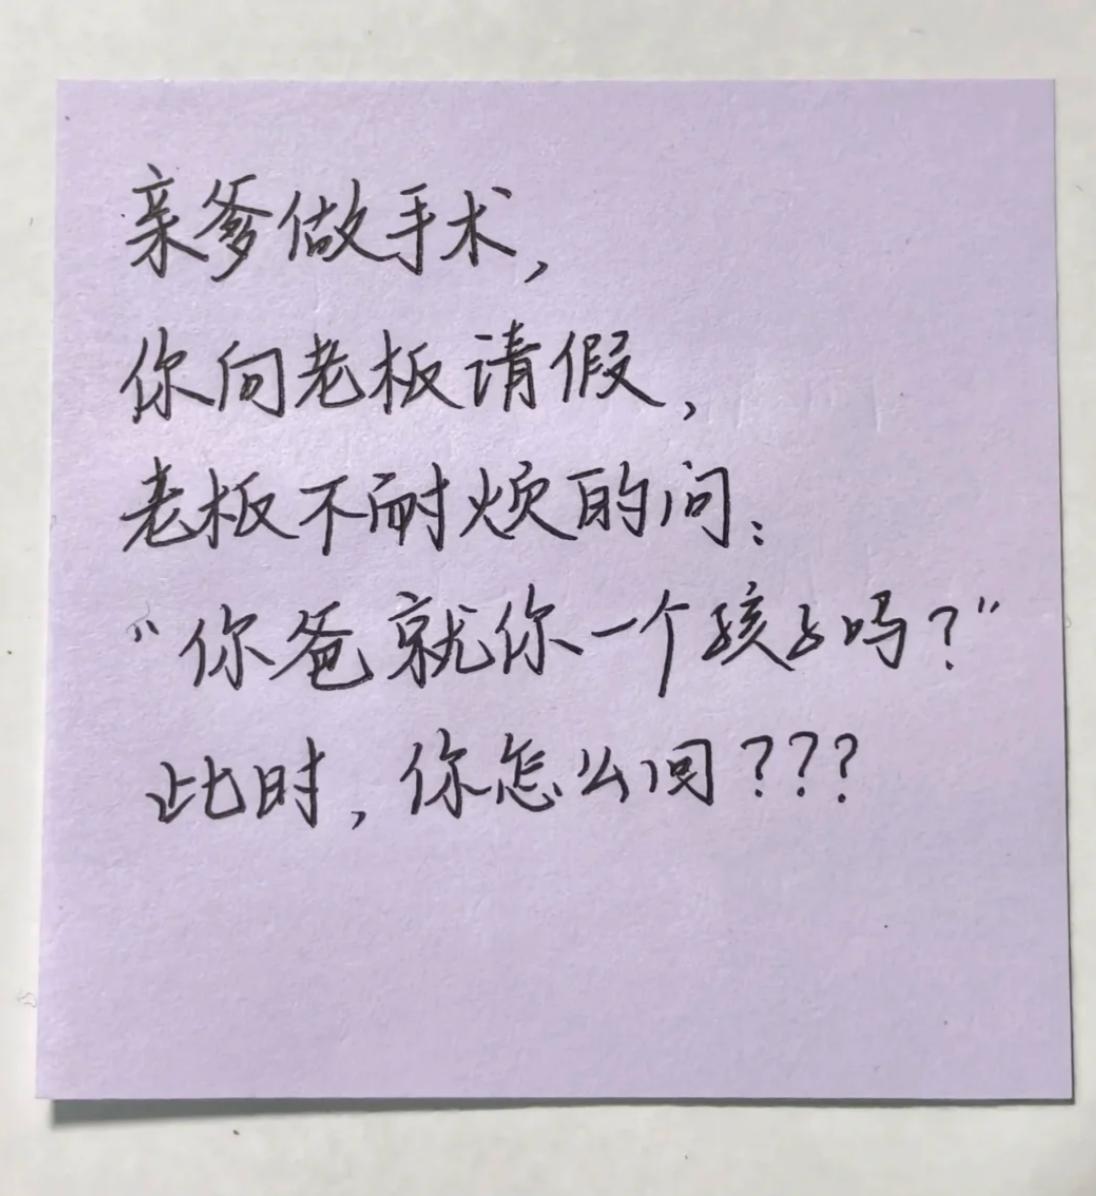 亲爹做手术，
你向老板请假，
老板不耐烦的问：
“你爸就你一个孩子吗？”
此时，你怎么回？？？